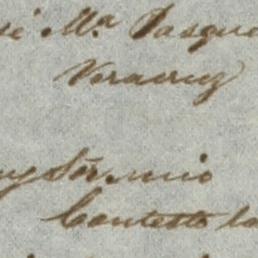 sé M.ª Pasqu
Veracruz
uy Sór. mio
Contesto la